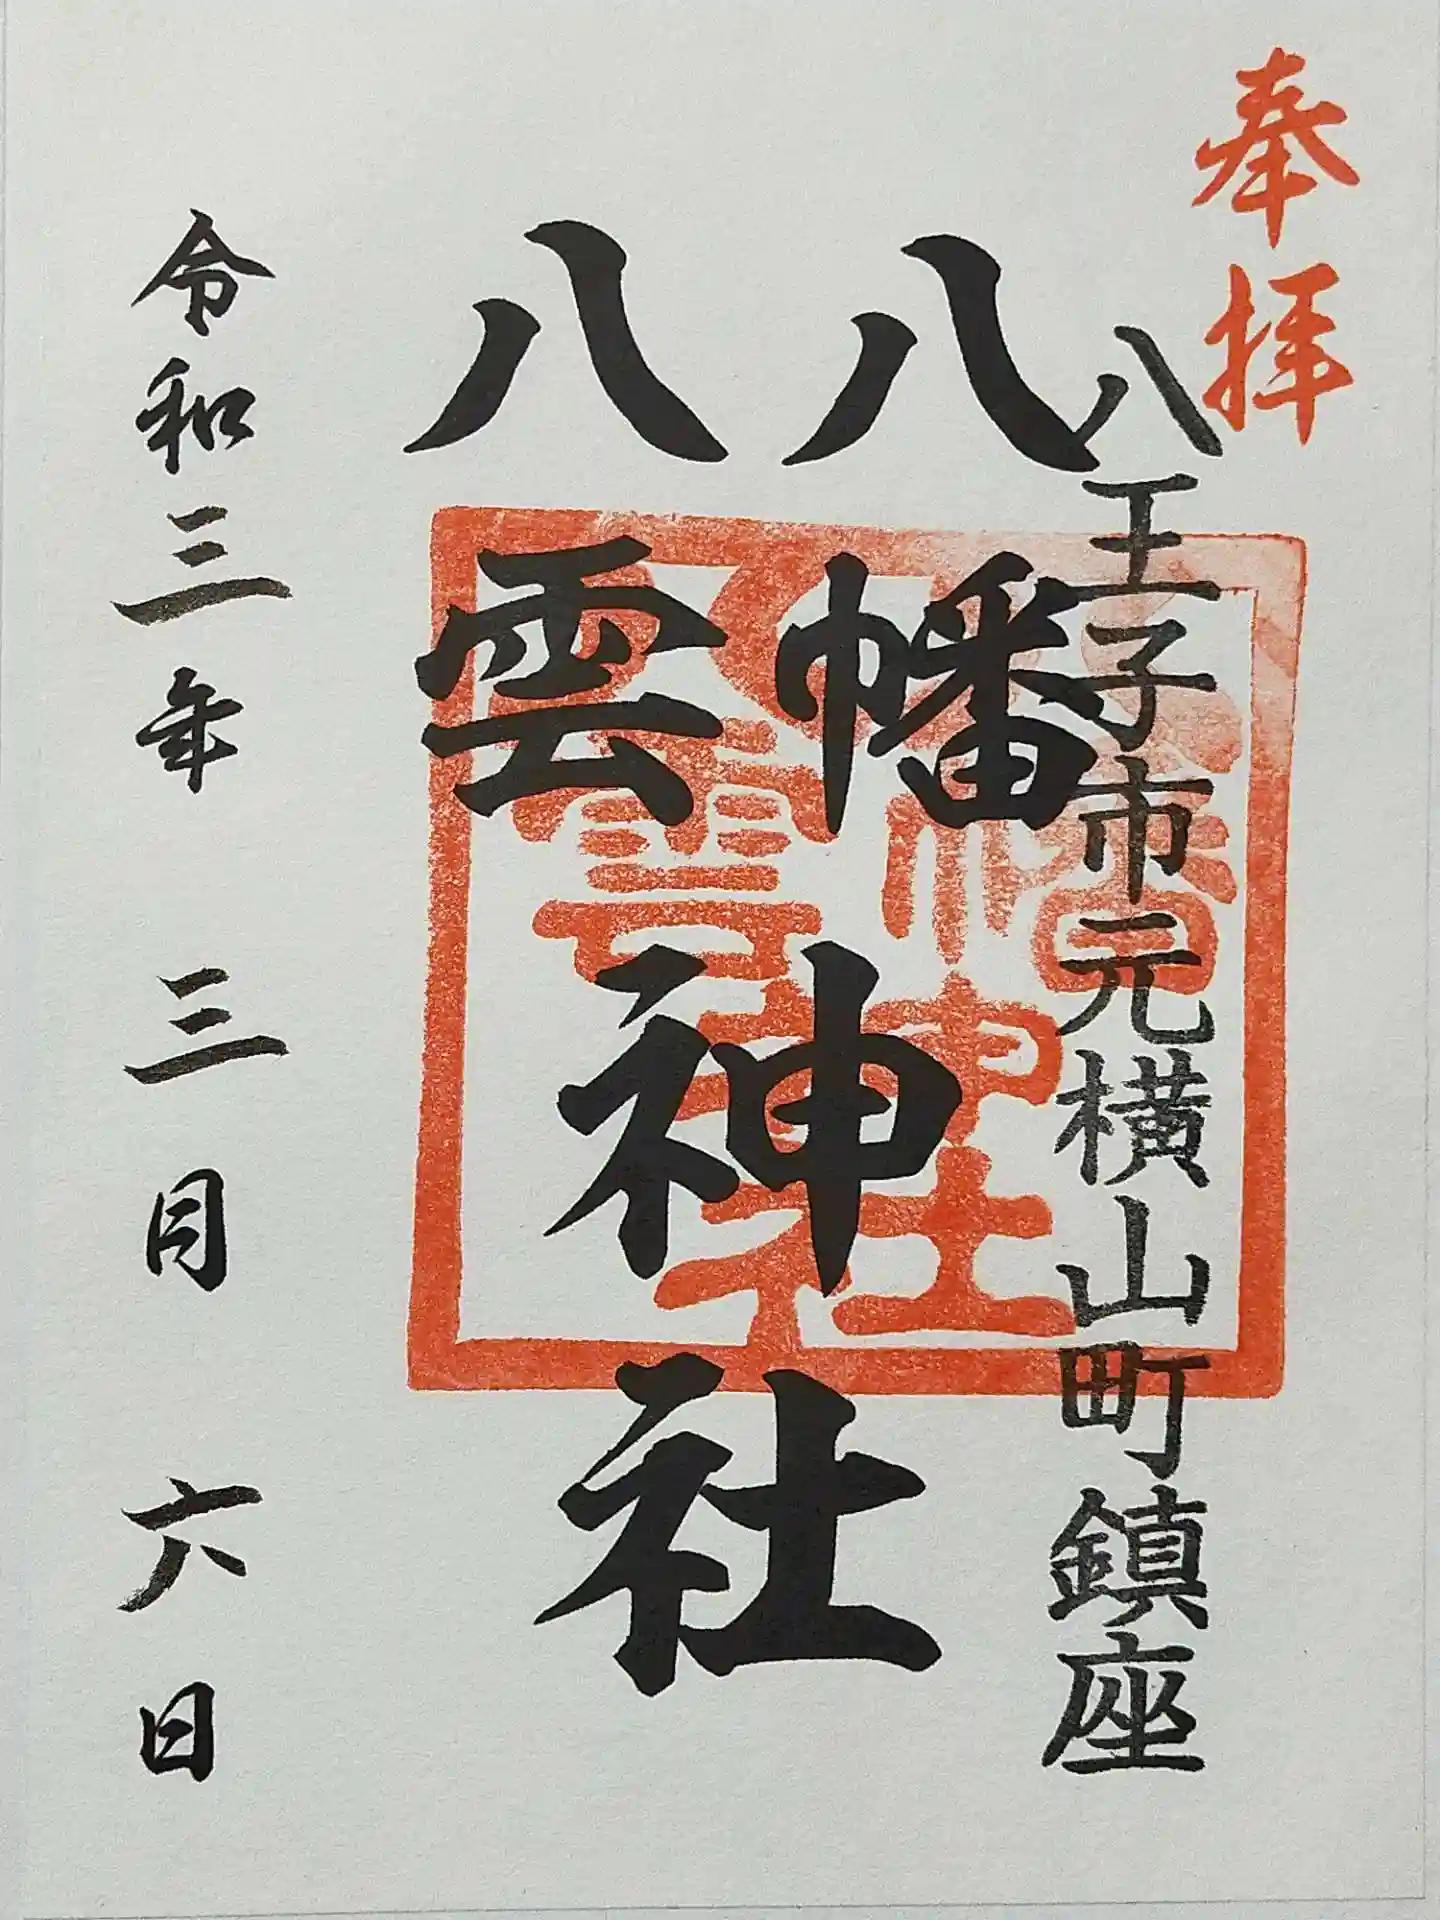 奉拝
八王子市元横山町鎮座
八幡
八雲
神社
令和三年三月六日